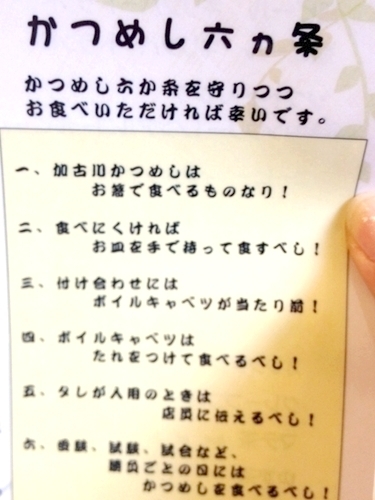 かつめし六ヵ条
かつめし六か条を守りつつ
お食べいただければ幸いです。
一、加古川かつめしは
お箸で食べるものなり！
二、食べにくければ
お皿を手で持って食すべし！
三、付け合わせには
ボイルキャベツが当たり前！
四、ボイルキャベツは
たれをつけて食べるべし！
五、タレが入用のときは
店員に伝えるべし！
六、受験、試験、試合など、
勝負ごとの日には
かつめしを食べるべし！